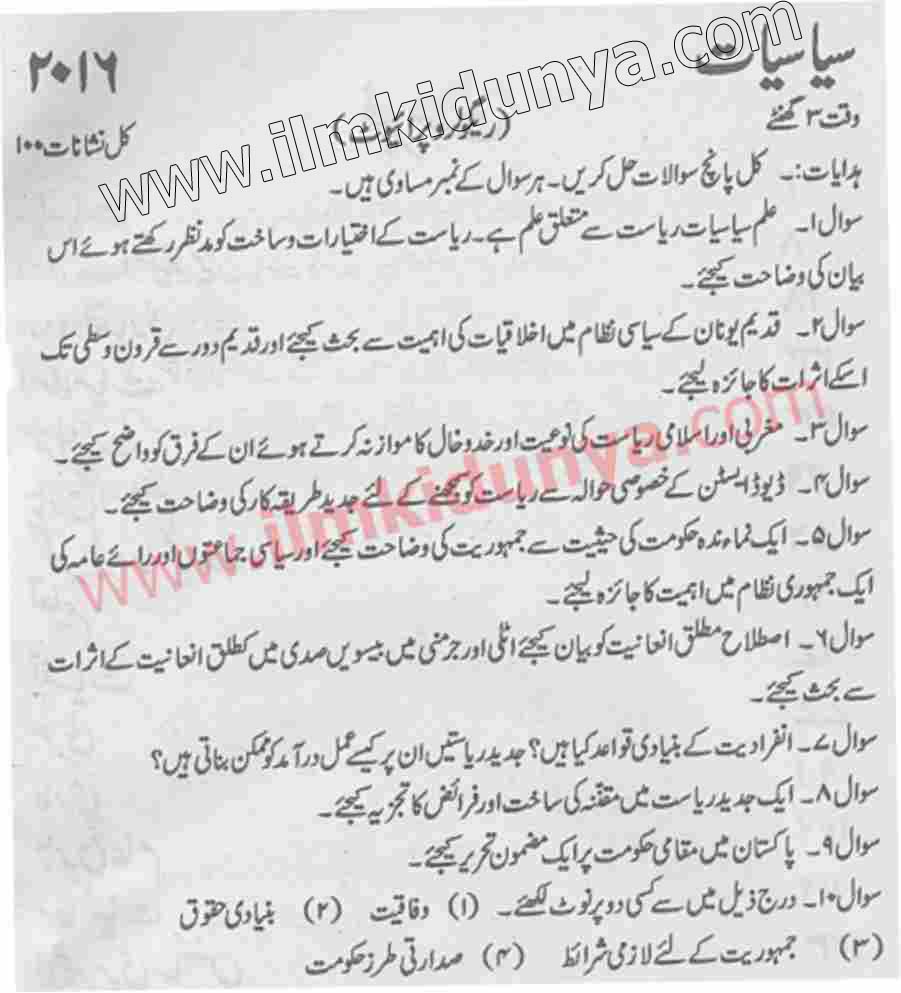 www.ilmkidunya.com
سیاسیات
۲۰۱۶
وقت ۳ گھنٹے
(ریگولر و پرائیوٹ)
کل نشانات ۱۰۰
ہدایات:۔ کل پانچ سوالات حل کریں۔ ہر سوال کے نمبر مساوی ہیں۔
سوال ۱۔ علم سیاسیات ریاست سے متعلق علم ہے۔ ریاست کے اختیارات و ساخت کو مدنظر رکھتے ہوئے اس
بیان کی وضاحت کیجئے۔
سوال ۲۔ قدیم یونان کے سیاسی نظام میں اخلاقیات کی اہمیت سے بحث کیجئے اور قدیم دور سے قرون وسطٰی تک
اسکے اثرات کا جائزہ لیجئے۔
سوال ۳۔ مغربی اور اسلامی ریاست کی نوعیت اور خدوخال کا موازنہ کرتے ہوئے ان کے فرق کو واضح کیجئے۔
سوال ۴۔ ڈیوڈ ایسٹن کے خصوصی حوالہ سے ریاست کو سمجھنے کے لئے جدید طریقہ کار کی وضاحت کیجئے۔
www.ilmkidunya.com
سوال ۵۔ ایک نماءندہ حکومت کی حیثیت سے جمہوریت کی وضاحت کیجئے اور سیاسی جماعتوں اور رائے عامہ کی
ایک جمہوری نظام میں اہمیت کا جائزہ لیجئے۔
سوال ۶۔ اصطلاح مطلق انعانیت کو بیان کیجئے اٹلی اور جرمنی میں بیسویں صدی میں کطلق انعانیت کے اثرات
سے بحث کیجئے۔
سوال ۷۔ انفرادیت کے بنیادی قواعد کیا ہیں؟ جدید ریاستیں ان پر کیسے عمل درآمد کو ممکن بناتی ہیں؟
سوال ۸۔ ایک جدید ریاست میں مقننہ کی ساخت اور فرائض کا تجزیہ کیجئے۔
سوال ۹۔ پاکستان میں مقامی حکومت پر ایک مضمون تحریر کیجئے۔
سوال ۱۰۔ درج ذیل میں سے کسی دو پر نوٹ لکھئے۔ (۱) وفاقیت (۲) بنیادی حقوق
(۳) جمہوریت کے لئے لازمی شرائط (۴) صدارتی طرز حکومت